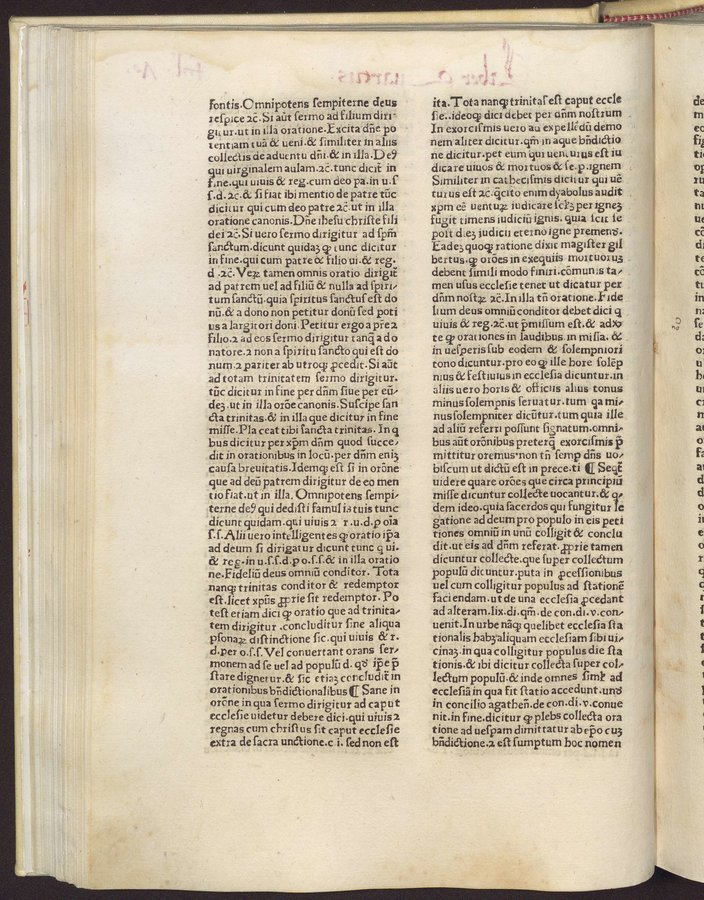 fontis. Omnipotens sempiterne deus
respice ⁊c̄. Si aūt sermo ad filium diri⸗
gitur. ut in illa oratione. Excita dn̄e po⸗
tentiam tuā & ueni. & similiter in aliis
collectis de aduentu dn̄i. & in illa. Deꝰ
qui uirginalem aulam. ⁊c̄. tunc dicit̄ in
fine. qui uiuis & reg. cum deo pa. in u. s
s. d. ⁊c̄. & si fiat ibi mentio de patre tūc
dicitur qui cum deo patre ⁊c̄. ut in illa
oratione canonis. Dn̄e ihesu christe fili
dei ⁊c̄. Si uero sermo dirigitur ad sp̄m
sanctum. dicunt quidaꝫ ꝙ tunc dicitur
in fine. qui cum patre & filio ui. & reg.
d. ⁊c̄. Veꝝ tamen omnis oratio dirigit̄
ad patrem uel ad filiū & nulla ad spiri⸗
tum sanctū. quia spiritus sanctus est do
nū. & a dono non petitur donū sed poti
us a largitori doni. Petitur ergo a pr̄e ⁊
filio. ⁊ ad eos sermo dirigitur tanq̄ a do
natore. ⁊ non a spiritu sancto qui est do
num. ⁊ pariter ab utroqꝫ ꝓcedit. Si aūt
ad totam trinitatem sermo dirigitur.
tūc dicitur in fine per dn̄m siue per eū⸗
deꝫ. ut in illa orōne canonis. Suscipe san
cta trinitas. & in illa que dicitur in fine
misse. Placeat tibi sancta trinitas. In q
bus dicitur per xp̄m dn̄m quod succe⸗
dit in orationibus in locū. per dn̄m eniꝫ
causa breuitatis. Idemqꝫ est si in orōne
que ad deū patrem dirigitur de eo men
tio fiat. ut in illa. Omnipotens sempi⸗
terne deꝰ qui dedisti famulis tuis tunc
dicunt quidam. qui uiuis ⁊ r. u. d. p oīa
s. s. Alii uero intelligentes ꝙ oratio ip̄a
ad deum si dirigatur dicunt tunc q̄ ui.
& reg. in u. s. s. d. p o. s. s. & in illa oratio
ne. Fideliū deus omniū conditor. Tota
nanqꝫ trinitas conditor & redemptor
est. licet xp̄us ꝓprie sit redemptor. Po
test etiam dici ꝙ oratio que ad trinita⸗
tem dirigitur. concluditur sine aliqua
ꝑsonaꝝ distinctione sic. qui uiuis & r.
d. per o. s. s. Vel conuertant orans ser⸗
monem ad se uel ad populū d. qd̄ ip̄e p̄
stare dignetur. & sic etiaꝫ concludit̄ in
orationibus bn̄dictionalibus ¶ Sane in
orōne in qua sermo dirigitur ad caput
ecclesie uidetur debere dici. qui uiuis ⁊
regnas cum christus sit caput ecclesie
extra de sacra unctione. c i. sed non est
ita. Tota nanqꝫ trinitas est caput eccle
sie. ideoqꝫ dici debet per dn̄m nostrum
In exorcismis uero au expellēdū demo
nem aliter dicitur. qm̄ in aque bn̄dictio
ne dicitur. per eum qui uenturus est iu
dicare uiuos & mortuos & se. p. ignem
Similiter in cathecismis dicitur qui uē
turus est ⁊c̄. qcito enim dyabolus audit
xp̄m eē uentuꝝ iudicare sclꝫ per ignez
fugit timens iudiciū ignis. quia scit se
post dieꝫ iudicii eterno igne premenď.
Eadeꝫ quoqꝫ ratione dixit magister gil
bertus. ꝙ orōes in exequiis mortuoruꝫ
debent simili modo finiri. cōmunis ta⸗
men usus ecclesie tenet ut dicatur per
dn̄m nostꝝ ⁊c̄. In illa tn̄ oratione. Fide
lium deus omniū conditor debet dici q
uiuis & reg. ⁊c̄. ut p̄missum est. & aduer
te ꝙ orationes in laudibus in missa. &
in uesperis sub eodem & solempniori
tono dicuntur. pro eo ꝙ ille hore solēp
nius & festiuius in ecclesia dicuntur. in
aliis uero horis & officiis alius tonus
minus solempnis seruatur. tum qa mi⸗
nus solempniter dicūtur. tum quia ille
ad aliū referri possunt signatum. omni⸗
bus aūt orōnibus preterqꝫ exorcismis p̄
mittitur oremus. non tn̄ semp dn̄s uo⸗
biscum ut dictū est in prece. ti ¶ Seqr̄
uidere quare orōes que circa principiū
misse dicuntur collecte uocantur. & q⸗
dem ideo. quia sacerdos qui fungitur le
gatione ad deum pro populo in eis peti
tiones omniū in unū colligit & conclu
dit. ut eis ad dn̄m referat. ꝓprie tamen
dicuntur collecte. que super collectum
populū dicuntur. puta in ꝓcessionibus
uel cum colligitur populus ad stationē
faciendam. ut de una ecclesia ꝓcedant
ad alteram. lix. di. qm̄. de con. di. v. con⸗
uenit. In urbe nāqꝫ quelibet ecclesia sta
tionalis habꝫ aliquam ecclesiam sibi ui⸗
cinaꝫ. in qua colligitur populus die sta
tionis. & ibi dicitur collecta super col⸗
lectum populū. & inde omnes simul ad
ecclesiā in qua fit statio accedunt. unď
in concilio agatheñ. de con. di. v. conue
nit. in fine. dicitur ꝙ plebs collecta ora
tione ad uesꝑam dimittatur ab ep̄o cuꝫ
bn̄dictione. ⁊ est sumptum hoc nomen